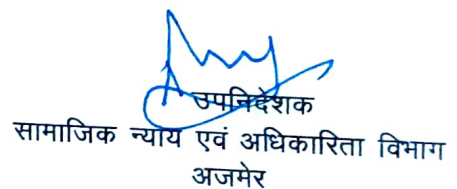 उपनिदेशक
सामाजिक न्याय एवं अधिकारिता विभाग
अजमेर